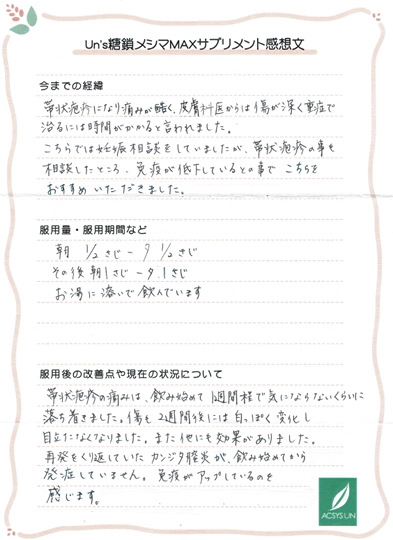 Un's糖鎖メシマMAXサプリメント感想文
今までの経緯
帯状疱疹になり痛みが酷く、皮膚科医からは傷が深く重症で
治るには時間がかかると言われました。
こちらでは妊娠相談をしていましたが、帯状疱疹の事も
相談したところ、免疫が低下しているとの事で こちらを
おすすめ いただきました。
服用量・服用期間など
朝 1/2 さじ ー 夕 1/2 さじ
その後 朝1さじ ー 夕.1さじ
お湯に溶いで飲んでいます
服用後の改善点や現在の状況について
帯状疱疹の痛みは、飲み始めて 1週間程で気にならないくらいに
落ち着きました。傷も 2週間後には白っぽく変化し
目立たなくなりました。また他にも効果がありました。
再発をくり返していた カンジタ膣炎が、飲み始めてから
発症していません。免疫がアップしているのを
感じます。
ACSYS UN